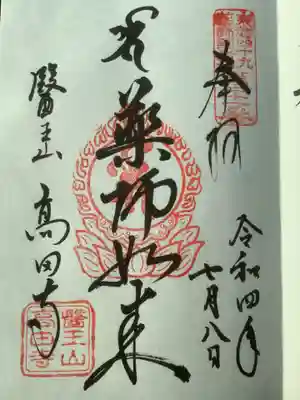 奉拝
令和四年
七月八日
薬師如来
醫王山
高田寺
醫王山
高田寺